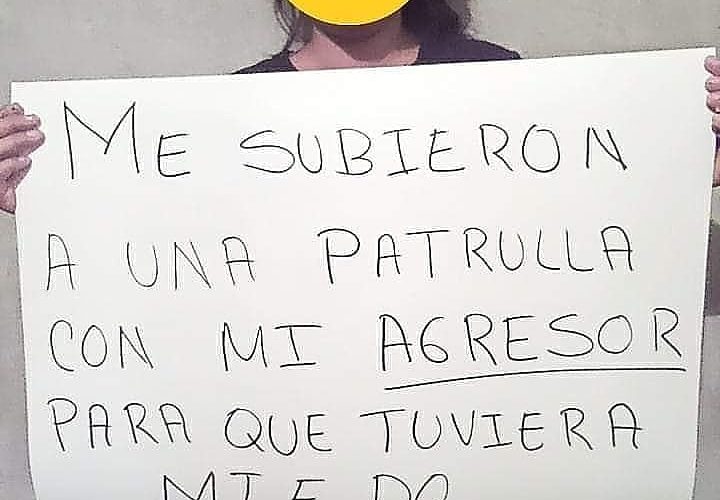 ME SUBIERON
A UNA PATRULLA
CON MI AGRESOR
PARA QUE TUVIERA
MIEDO